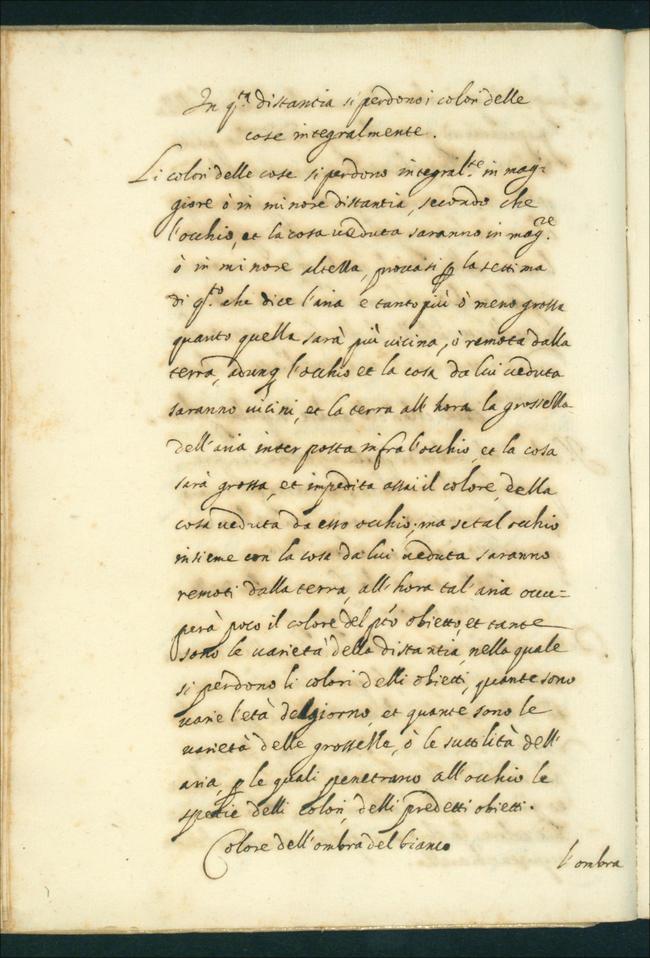 In q.ta distantia si perdono i colori delle
cose integralmente.
Li colori delle cose si perdono integral.te in mag-
giore ò in minore distantia, secondo che
l'occhio, et la cosa ueduta saranno in mag.re
ò in minore altezza, prouasi p la settima
di q.to che dice l'aria e tanto più ò meno grossa
quanto quella sarà più uicina, ò remota dalla
terra, adunq l'occhio et la cosa da lui ueduta
saranno uicini, et la terra all'hora la grossezza
dell'aria interposta infra l'occhio et la cosa
sarà grossa, et impedita assai il colore, della
cosa ueduta da esso occhio; ma se tal occhio
insieme con la cosa da lui ueduta saranno
remoti dalla terra, all'hora tal'aria occu=
perà poco il colore del p.to obietto, et tante
sono le uarietà della distantia, nella quale
si perdono li colori delli obietti, quante sono
uarie l'età del giorno, et quante sono le
uarietà delle grossezze, ò le suttilità dell'
aria, p le quali penetrano all'occhio le
spetie delli colori, delli predetti obietti.
Colore dell'ombra del bianco
l'ombra